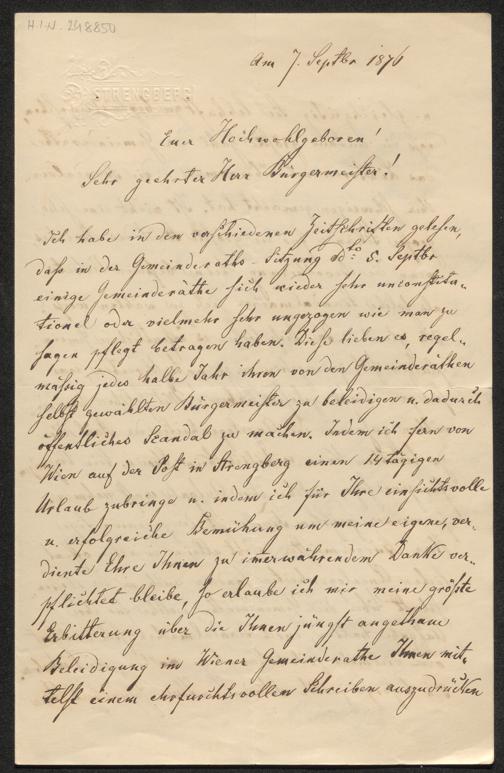 H.I.N. 248850
STRENGBERG
Am 7. Septbr 1876
Euer Hochwohlgeboren!
Sehr geehrter Herr Bürgermeister!
Ich habe in den verschiedenen Zeitschriften gelesen,
daß in der Gemeinderaths-Sitzung dto 5. Septbr
einige Gemeinderäthe sich wieder sehr unconstitu-
tionel oder vielmehr sehr ungezogen wie man zu
sagen pflegt betragen haben. Diese lieben es, regel-
mässig jedes halbe Jahr ihren von den Gemeinderäthen
selbst gewählten Bürgermeister zu beleidigen u. dadurch
öffentliches Scandal zu machen. Indem ich fern von
Wien auf der Post in Strengberg einen 14 tägigen
Urlaub zubringe u. indem ich für Ihre einsichtsvolle
u. erfolgreiche Bemühung um meine eigene, ver-
diente Ehre Ihnen zu imerwährendem Danke ver-
pflichtet bleibe, so erlaube ich mir meine größte
Erbitterung über die Ihnen jüngst angethane
Beleidigung im Wiener Gemeinderathe Ihnen mit-
telst einem ehrfurchtsvollen Schreiben auszudrücken